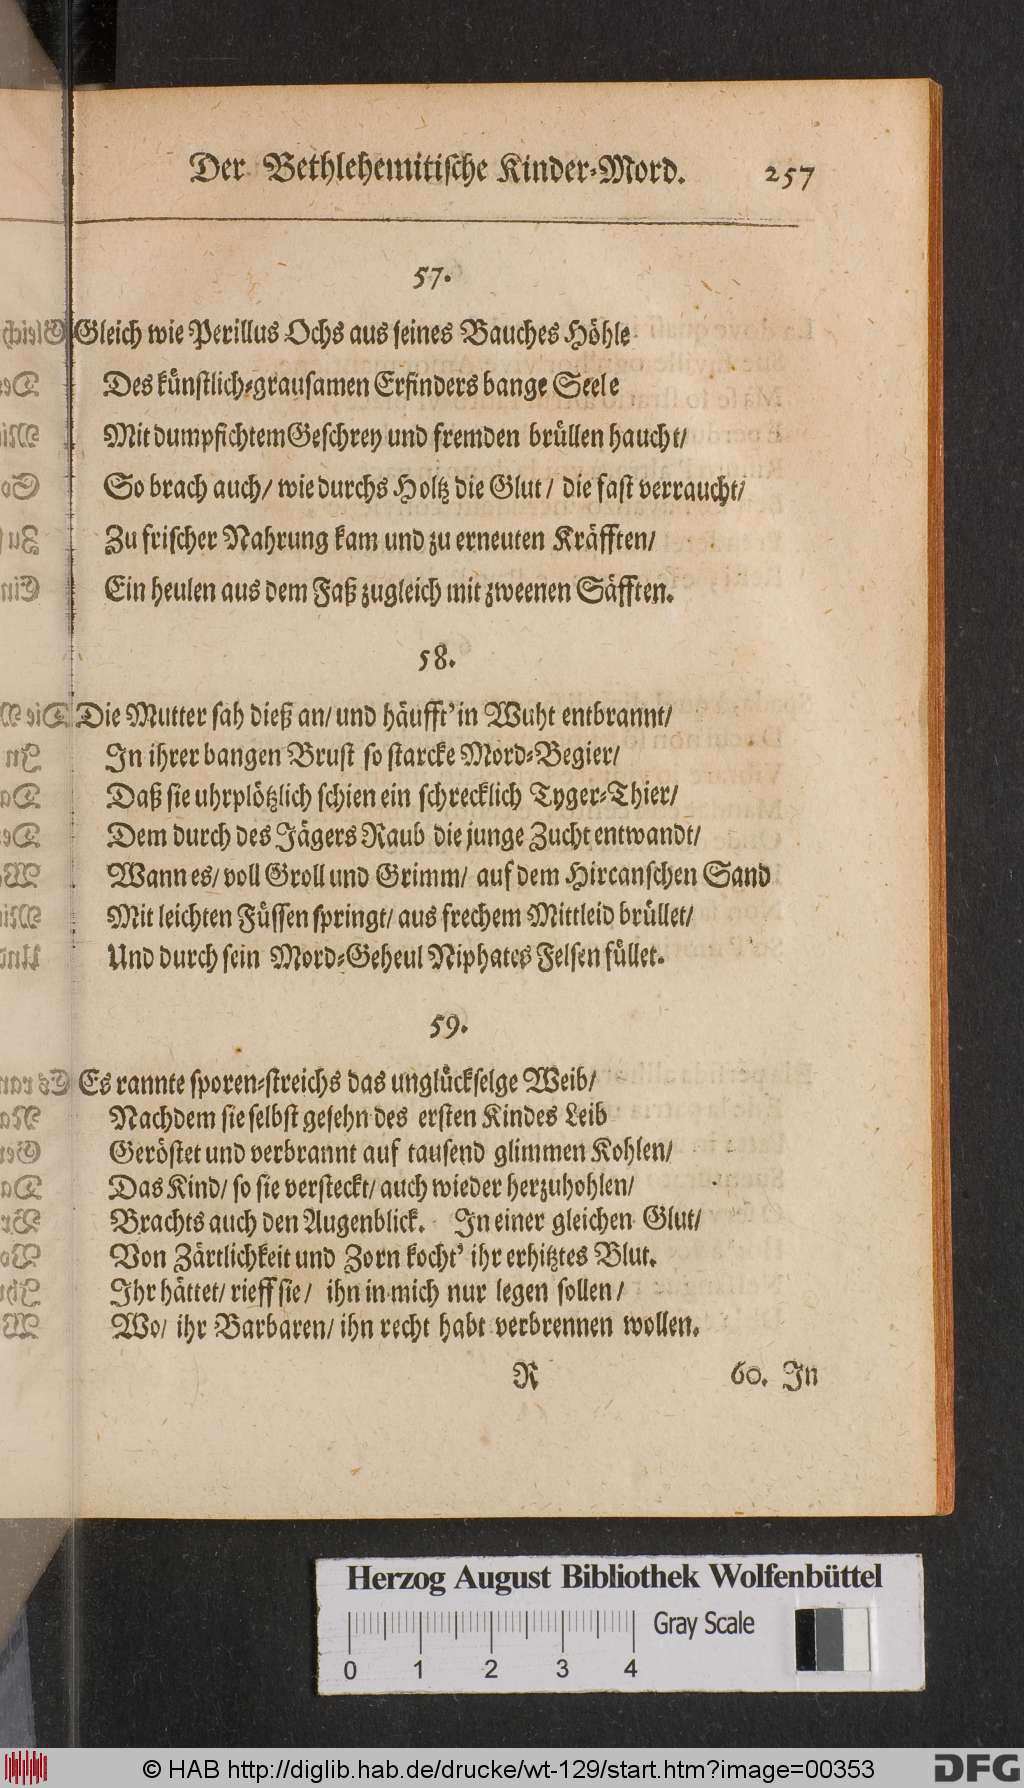 Der Bethlehemitische Kinder-Mord. 257
57.
Gleich wie Perillus Ochs aus seines Bauches Höhle
Des künstlich-grausamen Erfinders bange Seele
Mit dumpfichtem Geschrey und fremden brüllen haucht/
So brach auch/ wie durchs Holtz die Glut/ die fast verraucht/
Zu frischer Nahrung kam und zu erneuten Kräfften/
Ein heulen aus dem Faß zugleich mit zweenen Säfften.
58.
Die Mutter sah dieß an/ und häufft' in Wuht entbrannt/
In ihrer bangen Brust so starcke Mord-Begier/
Daß sie uhrplötzlich schien ein schrecklich Tyger-Thier/
Dem durch des Jägers Raub die junge Zucht entwandt/
Wann es/ voll Groll und Grimm/ auf dem Hircanschen Sand
Mit leichten Füssen springt/ aus frechem Mittleid brüllet/
Und durch sein Mord-Geheul Niphates Felsen füllet.
59.
Es rannte sporen-streichs das unglückselge Weib/
Nachdem sie selbst gesehn des ersten Kindes Leib
Geröstet und verbrannt auf tausend glimmen Kohlen/
Das Kind/ so sie versteckt/ auch wieder herzuhohlen/
Brachts auch den Augenblick. In einer gleichen Glut/
Von Zärtlichkeit und Zorn kocht' ihr erhitztes Blut.
Ihr hättet/ rieff sie/ ihn in mich nur legen sollen/
Wo/ ihr Barbaren/ ihn recht habt verbrennen wollen.
R 60. In
Herzog August Bibliothek Wolfenbüttel
Gray Scale
0 1 2 3 4
© HAB http://diglib.hab.de/drucke/wt-129/start.htm?image=00353
DFG